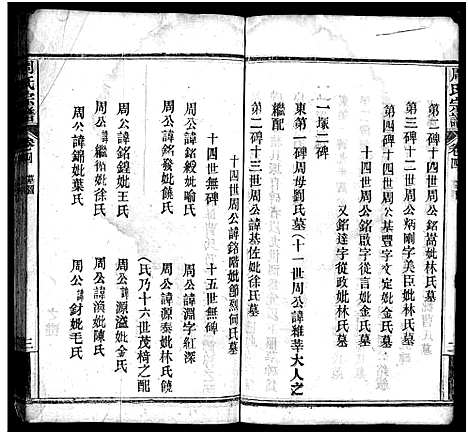 周氏宗譜
卷四
第二碑十三世周公銘嵩妣林氏墓
第三碑十二世周公炳剛字美臣妣林氏墓
第四碑十四世周公基豐字文定妣金氏墓
十四世周公銘啟字從言妣金氏墓
又銘達字從政妣林氏墓
一塚二碑
東第一碑周母劉氏墓(十一世周公諱雜莘大人之
繼配
第二碑十三世周公諱基佐妣徐氏墓
十四世周公諱銘階妣節烈何氏墓
十四世無碑
十五世無碑
周公諱銘毅妣喻氏
周公諱淵字紅深
周公諱銘發妣饒氏
周公諱源泰妣林氏饒
(氏乃十六世茂椅之配
周公諱銘鍠妣王氏
周公諱源溢妣金氏
周公諱繼偕妣委氏
周公諱濱妣陳氏
周公諱銘錦妣葉氏
周公諱釮妣毛氏
周氏宗譜
卷四
三